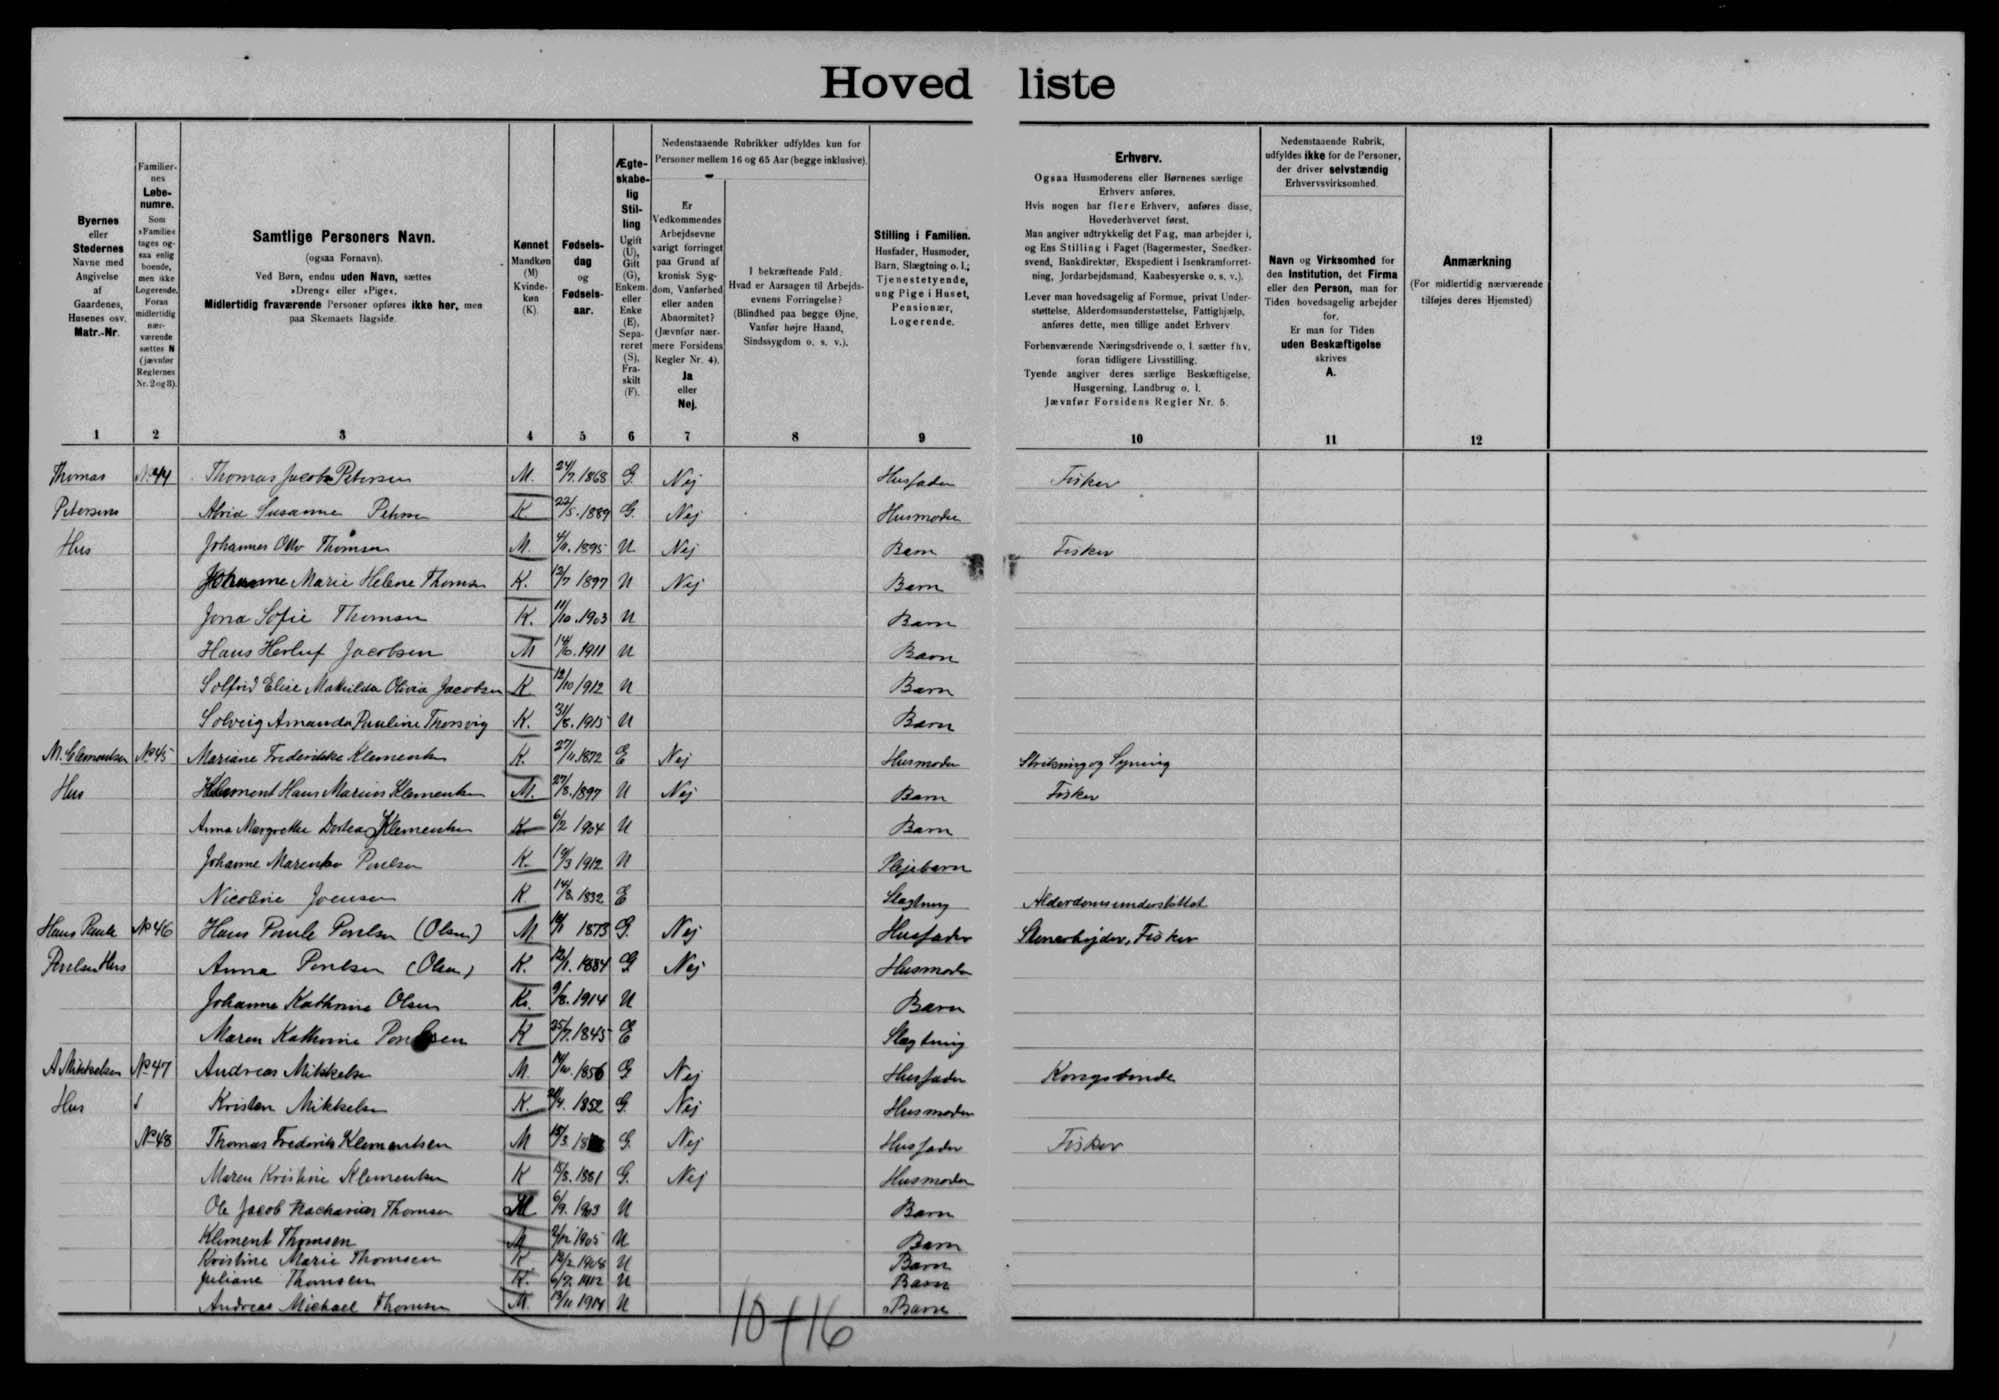 Hoved liste
Byernes
eller
Stedernes
Navne med
Angivelse
af
Gaardenes,
Husenes osv.
Matr.-Nr.
Familier-
nes
Løbe-
numre.
Som
»Familie«
tages og-
saa enlig
boende,
men ikke
Logerende.
Foran
midlertidig
nær-
værende
sættes N
(jævnfør
Reglernes
Nr. 2 og 3).
Samtlige Personers Navn.
(ogsaa Fornavn).
Ved Børn, endnu uden Navn, sættes
»Dreng« eller »Pige«.
Midlertidig fraværende Personer opføres ikke her, men
paa Skemaets Bagside.
Kønnet
Mandkøn
(M)
Kvinde-
køn
(K).
Fødsels-
dag
og
Fødsels-
aar.
Ægte-
skabe-
lig
Stil-
ling
Ugift
(U),
Gift
(G),
Enkem.
eller
Enke
(E),
Sepa-
reret
(S),
Fra-
skilt
(F).
Nedenstaaende Rubrikker udfyldes kun for
Personer mellem 16 og 65 Aar (begge inklusive).
Er
Vedkommendes
Arbejdsevne
varigt forringet
paa Grund af
kronisk Syg-
dom, Vanførhed
eller anden
Abnormitet?
(Jævnfør nær-
mere Forsidens
Regler Nr. 4).
Ja
eller
Nej.
I bekræftende Fald:
Hvad er Aarsagen til Arbejds-
evnens Forringelse?
(Blindhed paa begge Øjne,
Vanfør højre Haand,
Sindssygdom o. s. v.).
Stilling i Familien.
Husfader, Husmoder,
Barn, Slægtning o. l.;
Tjenestetyende,
ung Pige i Huset,
Pensionær,
Logerende.
Erhverv.
Ogsaa Husmoderens eller Børnenes særlige
Erhverv anføres.
Hvis nogen har flere Erhverv, anføres disse,
Hovederhvervet først.
Man angiver udtrykkelig det Fag, man arbejder i,
og Ens Stilling i Faget (Bagermester, Snedker-
svend, Bankdirektør, Ekspedient i Isenkramforret-
ning, Jordarbejdsmand, Kaabesyerske o. s. v.).
Lever man hovedsagelig af Formue, privat Under-
støttelse, Alderdomsunderstøttelse, Fattighjælp,
anføres dette, men tillige andet Erhverv
Forhenværende Næringsdrivende o. l. sætter fhv.
foran tidligere Livsstilling.
Tyende angiver deres særlige Beskæftigelse,
Husgerning, Landbrug o. l.
Jævnfør Forsidens Regler Nr. 5.
Nedenstaaende Rubrik,
udfyldes ikke for de Personer,
der driver selvstændig
Erhvervsvirksomhed.
Navn og Virksomhed for
den Institution, det Firma
eller den Person, man for
Tiden hovedsagelig arbejder
for.
Er man for Tiden
uden Beskæftigelse
skrives
A.
Anmærkning
(For midlertidig nærværende
tilføjes deres Hjemsted)
1 2 3 4 5 6 7 8 9 10 11 12
Thomas No 44 Thomas Jacob Petersen M. 24/7. 1868 G. Nej Husfader Fisker
Petersens Susanne Petersen K 22/5. 1889 G. Nej Husmoder
Hus Johannes Otto Thomsen M. 4/11. 1895 U Nej Barn Fisker
Johanne Marie Helene Thomsen K. 12/7 1897 U Nej Barn
Jona Sofie Thomsen K. 11/10. 1903 U Barn
Hans Herluf Jacobsen M 14/6. 1911 U Barn
Solfrid Elise Mathilda Olivia Jacobsen K 12/10 1912 U Barn
Solveig Amanda Pauline Thorsvig K. 31/8. 1915 U Barn
M. Clementsen No 45 Mariane Frederikke Klementsen K. 27/11. 1872 E Nej Husmoder Strikning og Syning
Hus Klement Hans Marius Klementsen M. 27/8. 1897 U Nej Barn Fisker
Anna Margrethe Dorthea Klementsen K 6/2 1904 U Barn
Johanne Marenba Poulsen K. 19/3 1912 U Plejebarn
Nicoline Joensen K 14/8. 1832 E Slægtning Alderdomsunderstøttet
Hans Paule No 46 Hans Paule Poulsen (Olsen) M 1873 G. Nej Husfader Stenarbejder, Fisker
Poulsen Hus Anna Poulsen (Olsen) K. 12/1. 1884 G Nej Husmoder
Johanna Kathrine Olsen K. 9/8. 1914 U Barn
Maren Kathrine Poulsen K 25/7. 1845 E Slægtning
A Mikkelsen No 47 Andreas Mikkelsen M. 1856 G Nej Husfader Kongsbonde
Hus Kristen Mikkelsen K. 1852 G. Nej Husmoder
No 48 Thomas Frederik Klementsen M 15/3. G. Nej Husfader Fisker
Maren Kristine Klementsen K 1881 G. Nej Husmoder
Ole Jacob Zacharias Thomsen M 6/9. 1903 U Barn
Klement Thomsen M 1905 U Barn
Kristine Marie Thomsen K 1908 U Barn
Juliane Thomsen K. 6/7. 1912 U Barn
Andreas Michael Thomsen M. 13/11 1914 U Barn
10+16